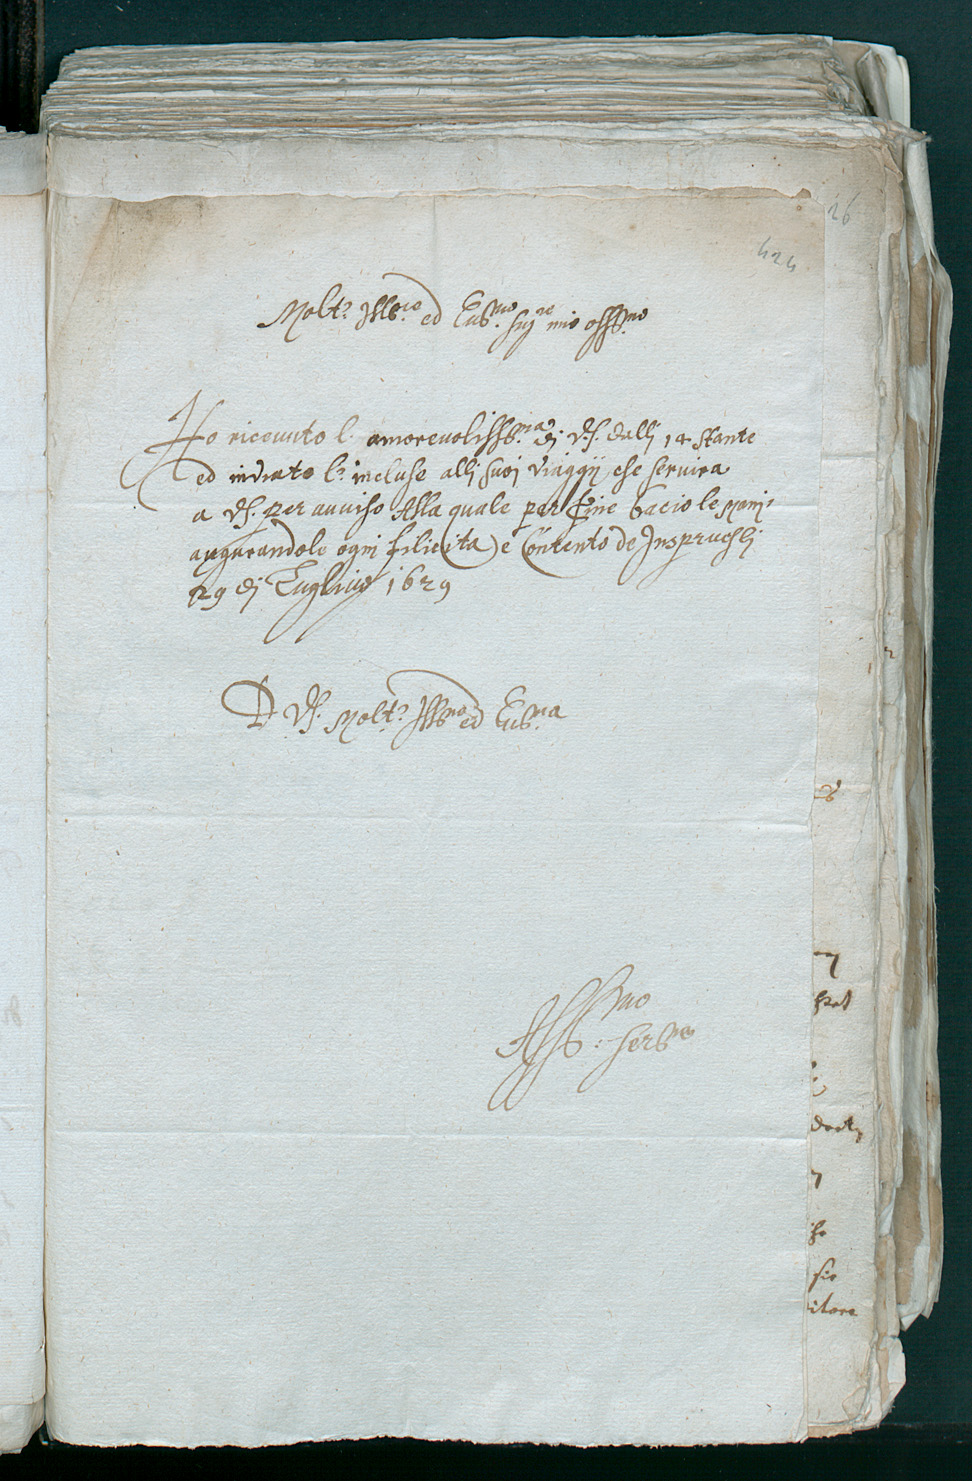 26
424
Molt.º Ill.re ed Ecc.mo Sig.re mio oss.mo
Ho riceuuto l. amoreuoliss.ma di VS. dallj 14 stante
ed inviato l.e incluse allj suoj viaggij che seruira
a VS. per auuiso Alla quale per fine bacio le manj
augurandole ogni felicita e Contento de Insprugh lj
29 dj Luglio 1629
D VS. Molt.º Ill.re ed Ecc.ma
Aff.mo Ser.re